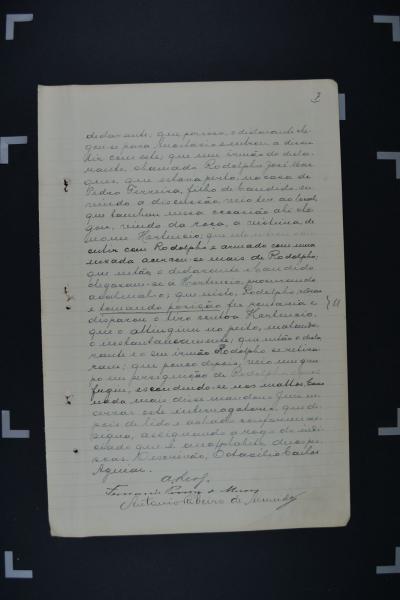 3
declarante; que por isso, o declarante che-
gou-se para Anastacio e entrou a discu-
tir com este; que um irmão do decla-
rante, chamado Rodolpho José
que estava perto, na casa de
Pedro Ferreira, filho de Candido, ou-
vindo a discussão veio ter ao local,
que tambem nessa occasião ahi che-
gou, vindo da roça, a victima de
nome Hortencio; que
cutir com Rodolpho e armado com uma
enxada acercou-se mais de Rodolpho;
que então o declarante e Candido
chegaram-se a Hortencio, procurando
acalmal-o; que nisto, Rodolpho
e tomando posição fez pontaria e
disparou o tiro contra Hortencio,
que o attingiu no peito, matando-
o instantaneamente; que então o decla-
rante e o seu irmão Rodolpho se retira-
ram; que pouco depois, veio um gru-
po em perseguição de Rodolpho
fugiu, escondendo-se nos mattos.
nada mais disse mandou
cerrar este interrogatorio, que de-
pois de lido e achado conforme as-
signa, assignando a rogo do indi-
ciado que é analphabeto
Escrivão, Octacilio Carlos
Aguiar.
Antonio Ribeiro de